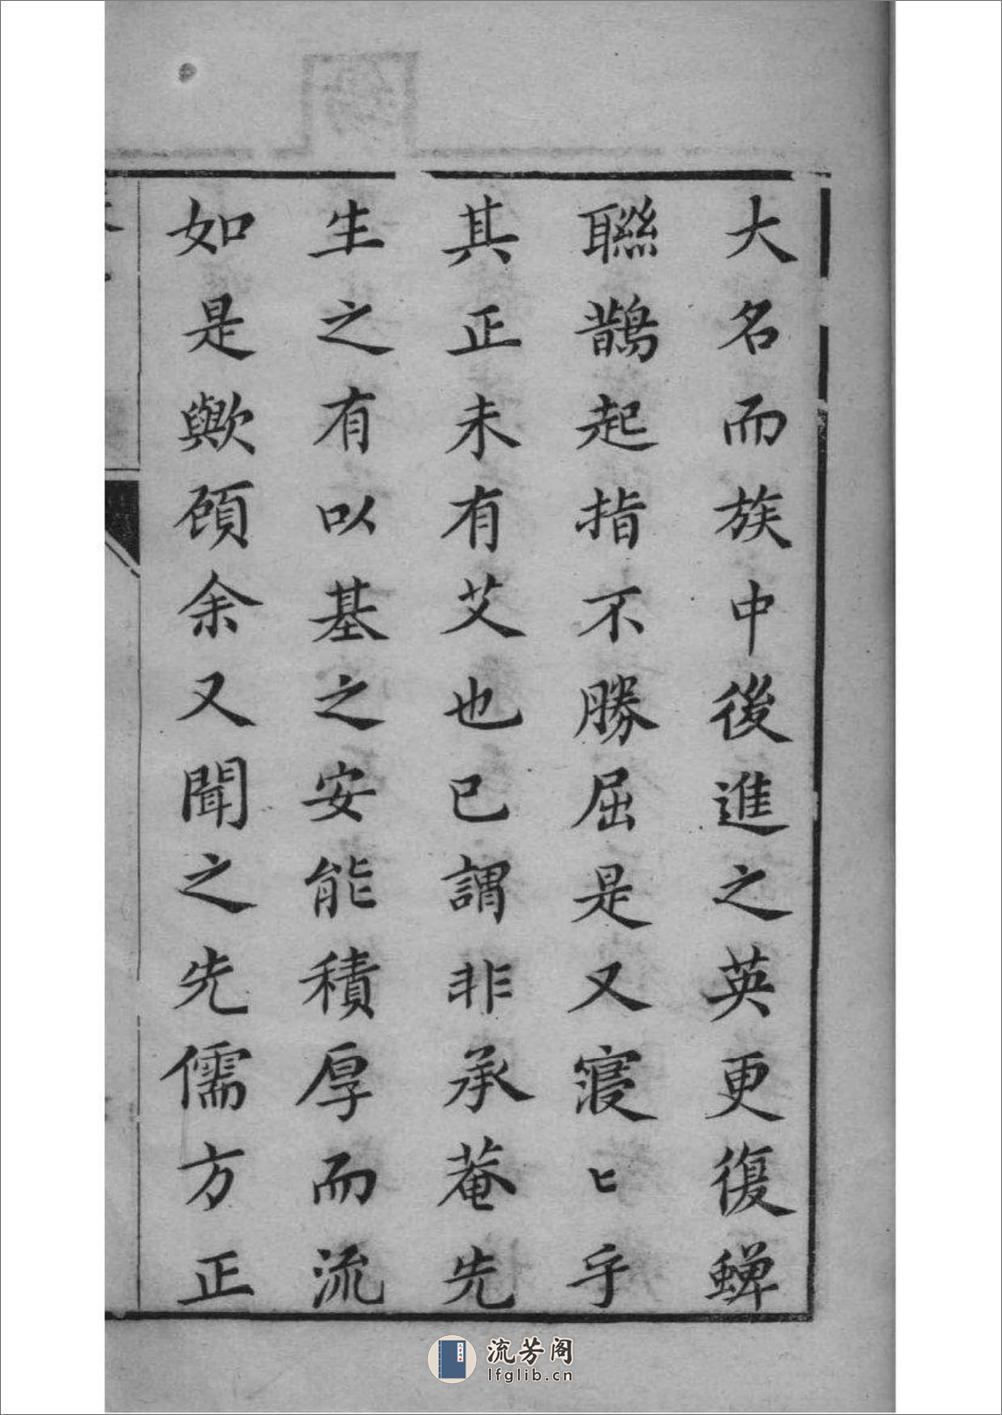 大名而族中後進之英更復蟬
聯鵲起指不勝屈是又寖〻乎
其正未有艾也已謂非承菴先
生之有以基之安能積厚而流
如是歟頋余又聞之先儒方正
流芳阁
lfglib.cn